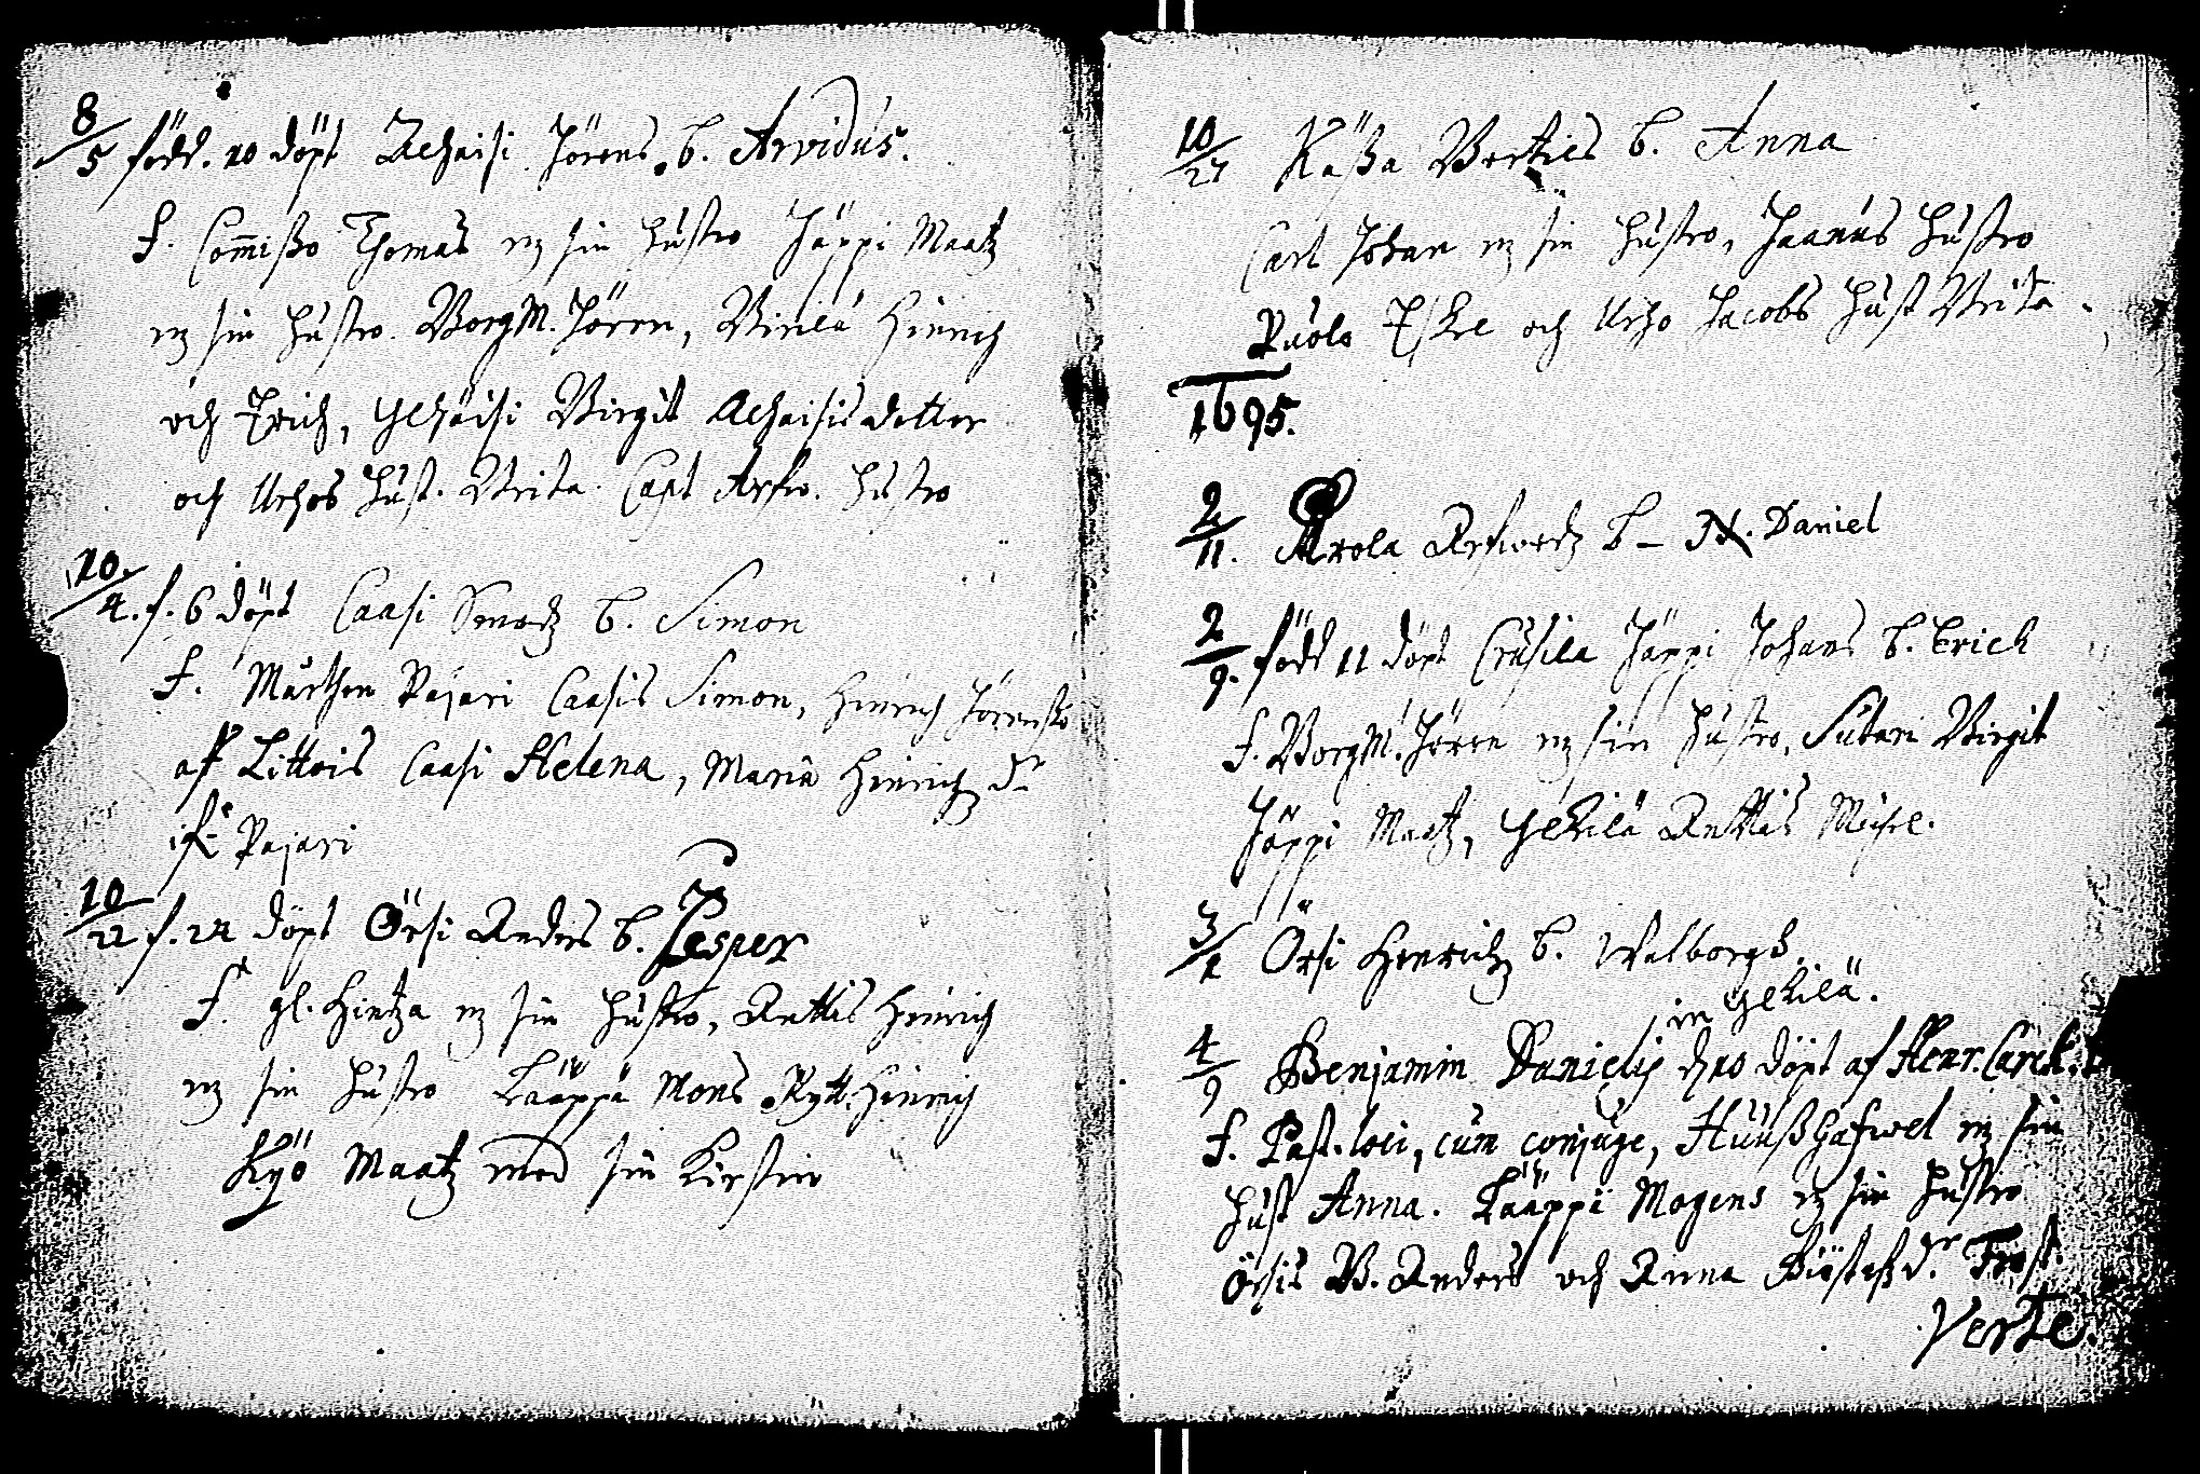 8/5 född. 10 döpt Achaisi Jörens. b. Arvidus.
f. Com̄isso Thomas m sin hustro Jäppi Maatz
m sin hustro. BorgM. Jören, Birilä Hinrich
och Erich, Yckäisi Birgit Achaisis dotter
och Urhos hust. Brita. Capt Arfw. hustro
10/4. f. 6 döpt Caasi Smeds b. Simon
f. Mårthen Pajari Caasis Simon, Hinrich Jörensso
af Littois Caasi Helena, Maria Hinrichz dr
i Pajari
10/22 f. 24 döpt Örsi Anders b. Jesper
f. gl. Hintza m sin hustro, Anttis Hinrich
m sin hustro Lääppä Mons Rytt. Hinrich
Kyö Maatz med sin Kirstin
10/27 Kässa Bertils b. Anna
Carl Johan m sin hustro, Jaanus hustro
Puolo Eskel och Urho Jacobs hust Brita.
1695.
2/11. Arola Arfwedz b – N. Daniel
2/9. född 11 döpt Crusila Jäppi Johans b. Erich
f. BorgM. Jören m sin hustro, Sutari Birgit
Jäppi Maatz, Yckilä Anttis Michel.
3/1 Örsi Henrichz b. Walborg
in Yckilä.
4/9 Benjamin Danielis d 10 döpt af Henr. Carck.
f. Past. loci, cum conjuge, Huusshafwel m sin
hust Anna. Lääppi Mogens m sin hustro
Örsis B. Anders och Anna Giöstafz dr Frost.
Verte.